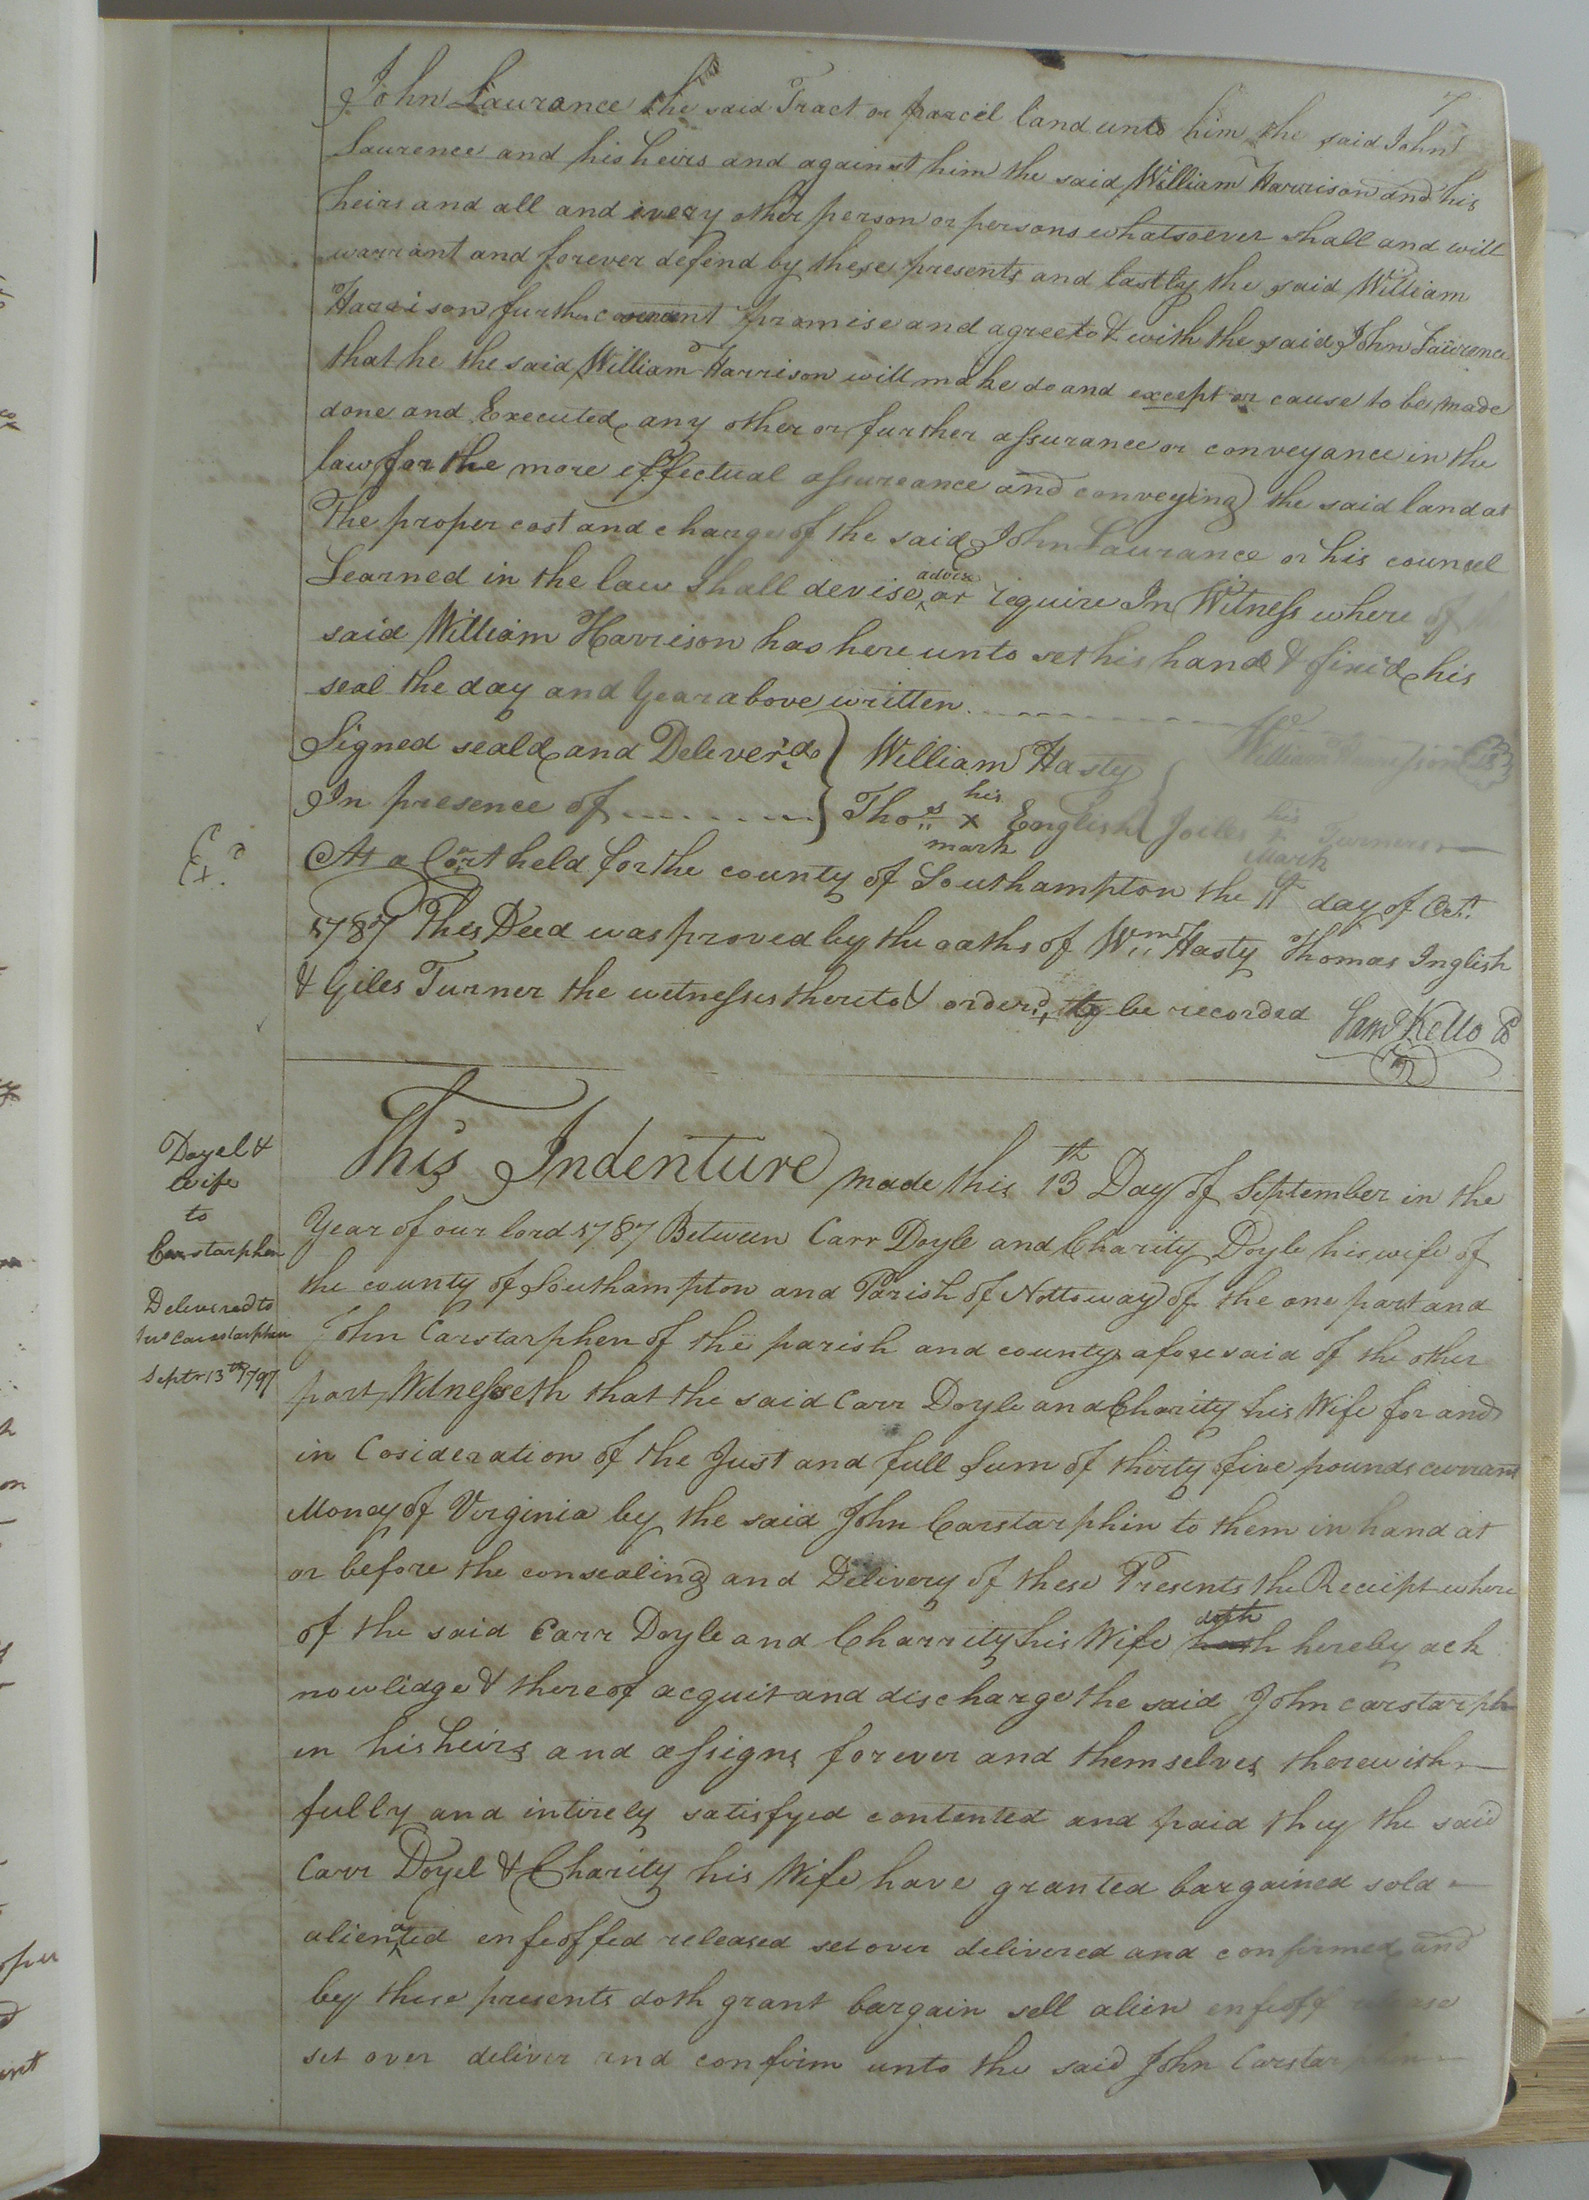 7
John Laurance the said Tract or parcel land unto him the said John
Laurence and his heirs and against him the said William Harrison and his
heirs and all and every other person or persons whatsoever shall and will
warrant and forever defend by these presents and lastly the said William
Harrison further covenant promise and agree to & with the said John Laurence
that he the said William Harrison will make do and except or cause to be made
done and Executed any other or further assurance or conveyance in the
law for the more effectual assureance and conveying the said land at
The proper cost and charge of the said John Laurance or his councel
Learned in the law shall devise advise or require In Witness where of
said William Harrison has here unto set his hand & fixed his
seal the day and Year above written
Signed seald and Deliver'd William Hasty William Harrison
In presence of Thos his x mark English Joiles his x mark Turner
Ex.d
At a Cort held for the county of Southampton the 11th day of Oct.
1787 This Deed was proved by the oaths of Wm Hasty Thomas Inglish
& Giles Turner the witnesses thereto & order'd to be recorded Saml Kello
Doyel &
wife
to
Carstarphen
Delivered to
Jno Carstarphen
Septr 13th 1797
This Indenture made this 13th Day of September in the
Year of our lord 1787 Between Carr Doyle and Charity Doyle his wife of
the county of Southampton and Parish of Nottoway of the one part and
John Carstarphen of the parish and county aforesaid of the other
part Witnesseth that the said Carr Doyle and Charity his Wife for and
in Cosideration of the Just and full Sum of thirty five pounds currant
Money of Virginia by the said John Carstarphin to them in hand at
or before the consealing and Delivery of these Presents the Receipt where
of the said Carr Doyle and Charrity his Wife doth hereby ack
nowlidge & thereof acquit and discharge the said John Carstarph
en his heirs and assigns forever and themselves therewith
fully and intirely satisfyed contented and paid they the said
Carr Doyel & Charity his Wife have granted bargained sold
alienated enfeoffed released set over delivered and confirmed and
by these presents doth grant bargain sell alien enfeoff release
set over deliver and confirm unto the said John Carstarphen